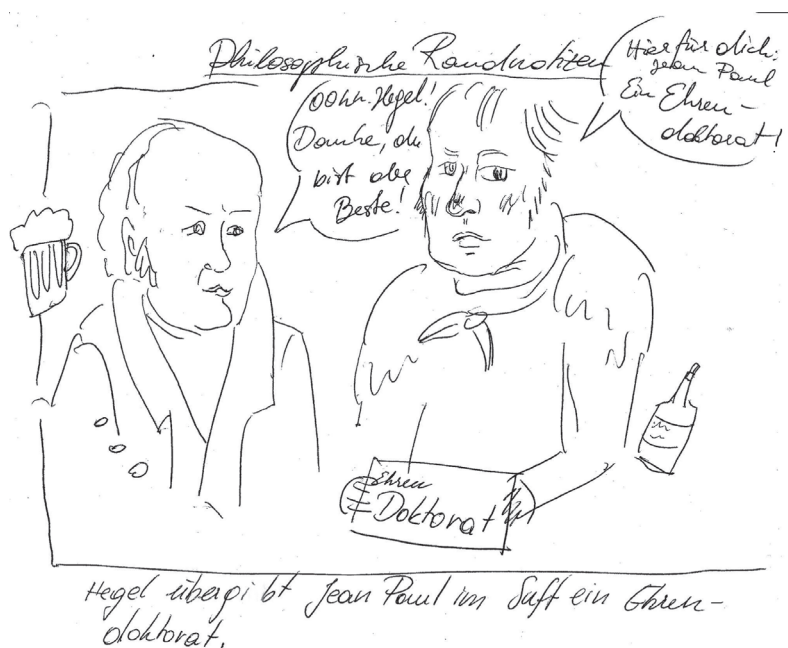 Philosophische Randnotizen
Hier für dich:
Jean Paul
Ein Ehren-
doktorat!
Oohh Hegel!
Danke, du
bist der
Beste!
Ehren
Doktorat
Hegel übergibt Jean Paul im Suff ein Ehren-
doktorat.